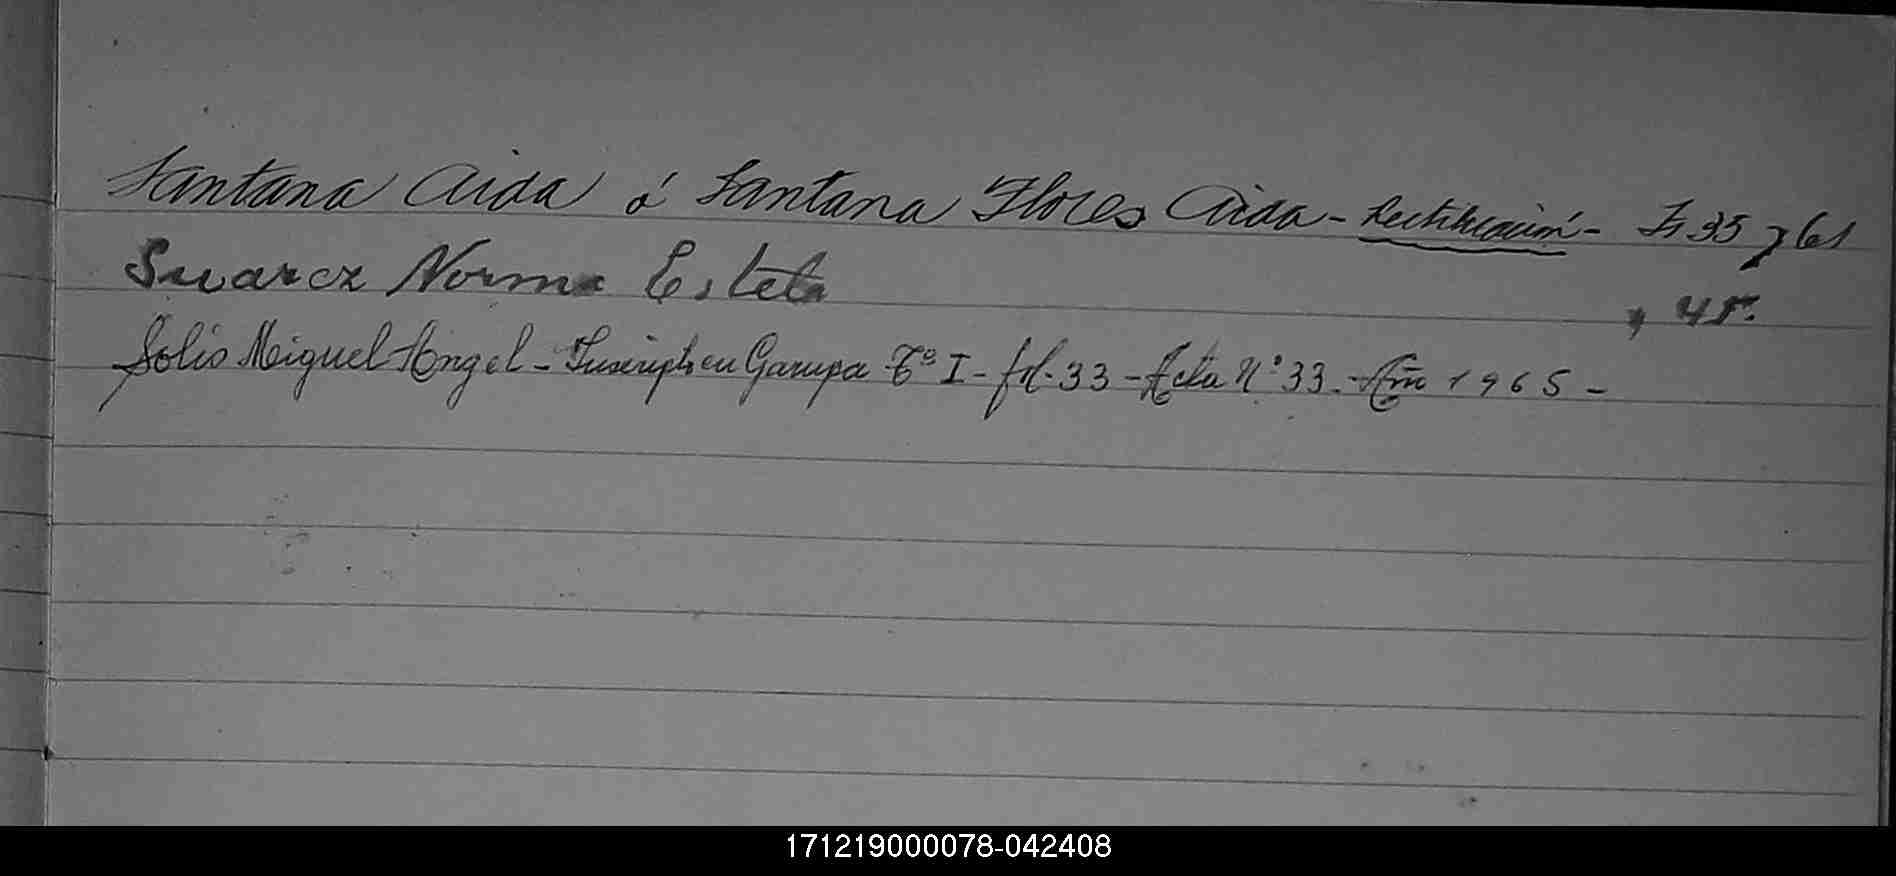 Santana Aida ó Santana Flores Aida - Rectificación - Fs 35 y 61
Suarez Norma Estela " 45.
Solis Miguel Angel - Inscripto en Garupa Tº I - fol. 33 - Acta Nº 33. - Año 1965 -
171219000078-042408